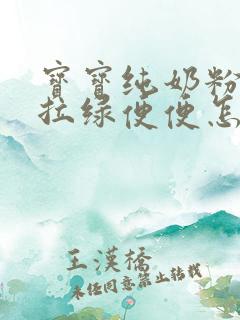 寶寶纯奶粉
拉绿便便怎
王漢橋
未经同意禁止转载